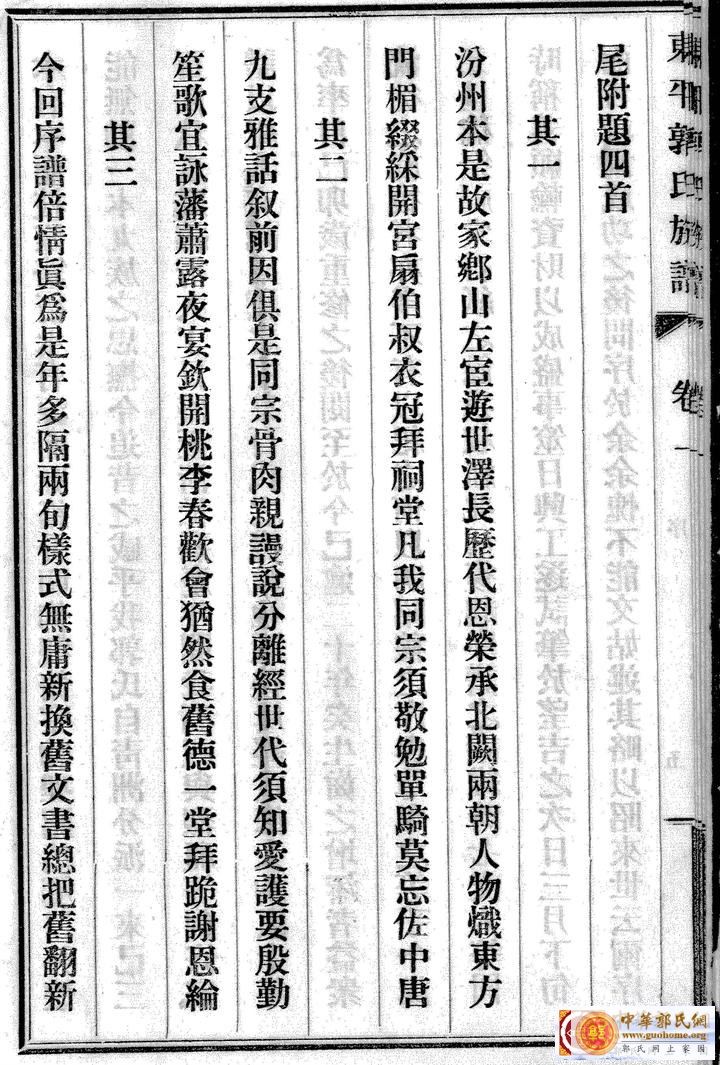 東平郭氏族譜 卷一
尾附題四首
其一
汾州本是故家鄉山左宦遊世澤長歷代恩榮承北闕兩朝人物熾東方
門楣綴綵開宮扇伯叔衣冠拜祠堂凡我同宗須敬勉單騎莫忘佐中唐
其二
九支雅話叙前因俱是同宗骨肉親謾說分離經世代須知愛護要殷勤
笙歌宜詠藩蕭露夜宴欽開桃李春歡會猶然食舊德一堂拜跪謝恩綸
其三
今回序譜倍情眞爲是年多隔兩旬樣式無庸新換舊文書總把舊翻新
中華郭氏網
www.guohome.org
郭氏网上家园